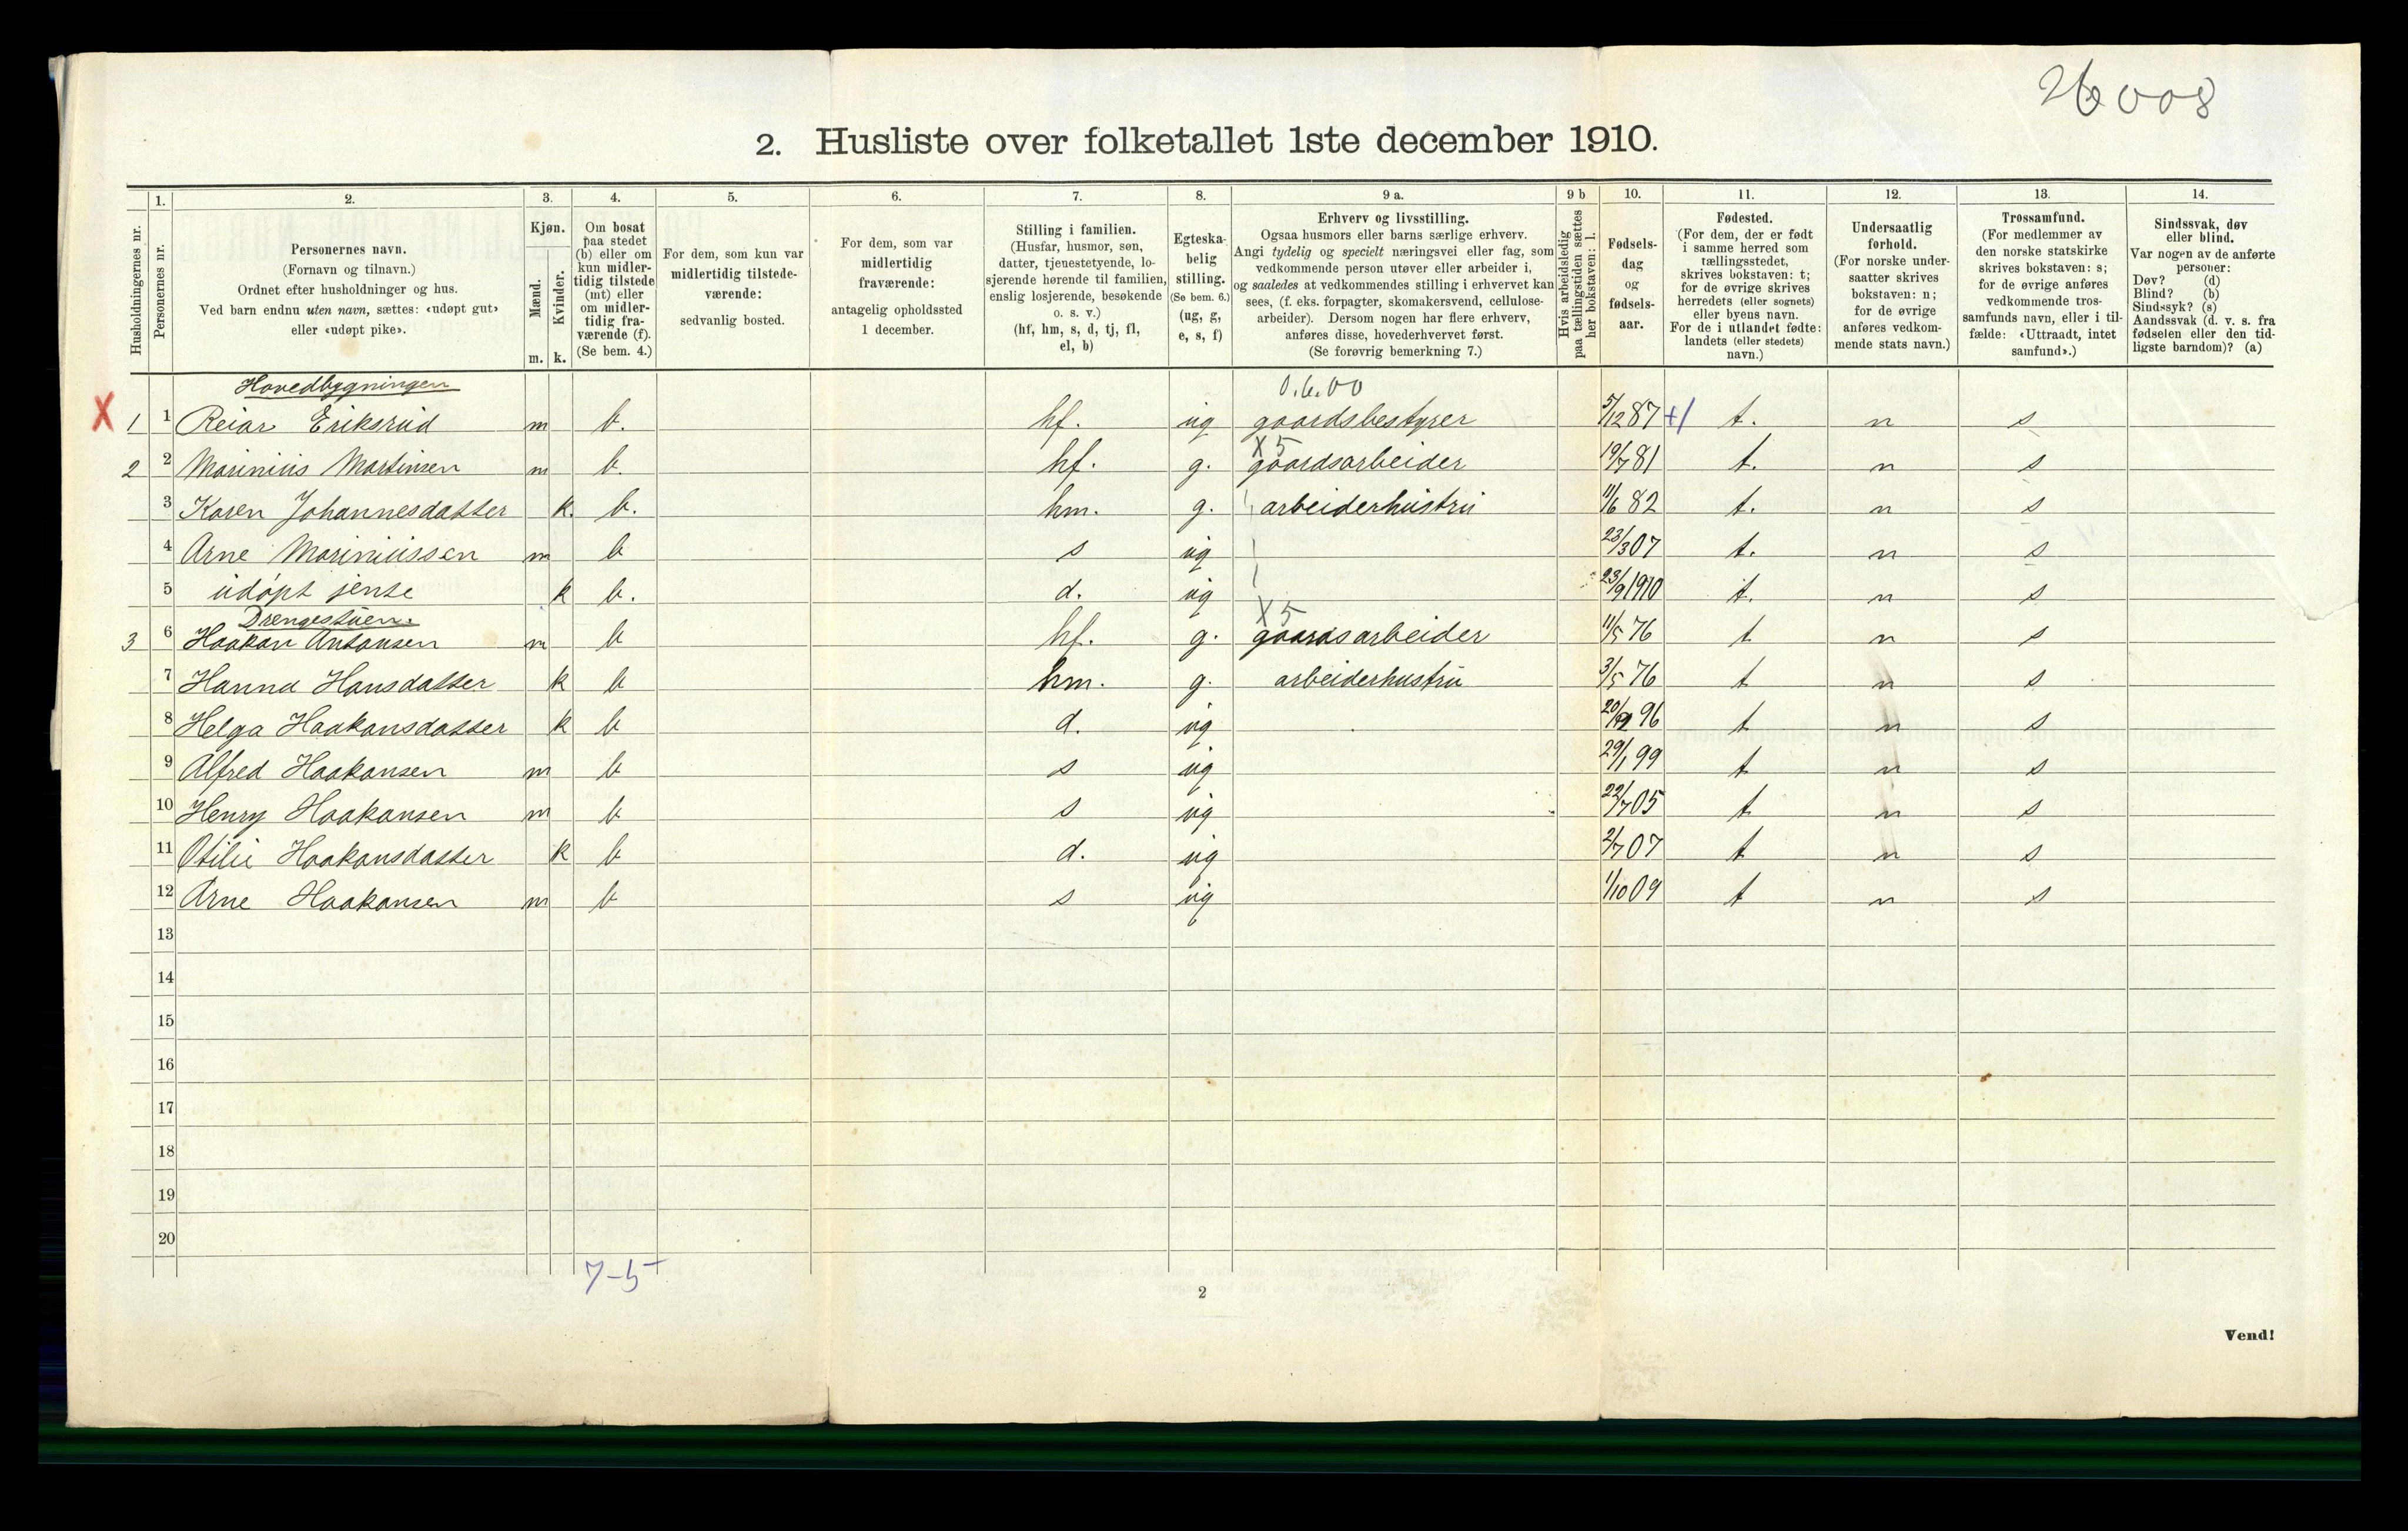 26008
2. Husliste over folketallet 1ste december 1910.
1. 2. 3. 4. 5. 6. 7. 8. 9 a. 9 b 10. 11. 12. 13. 14.
Husholdningernes nr.
Personernes nr.
Personernes navn.
(Fornavn og tilnavn.)
Ordnet efter husholdninger og hus.
Ved barn endnu uten navn, sættes: «udøpt gut»
eller «udøpt pike».
Kjøn.
Mænd.
Kvinder.
m. k.
Om bosat
paa stedet
(b) eller om
kun midler-
tidig tilstede
(mt) eller
om midler-
tidig fra-
værende (f).
(Se bem. 4.)
For dem, som kun var
midlertidig tilstede-
værende:
sedvanlig bosted.
For dem, som var
midlertidig
fraværende:
antagelig opholdssted
1 december.
Stilling i familien.
(Husfar, husmor, søn,
datter, tjenestetyende, lo-
sjerende hørende til familien,
enslig losjerende, besøkende
o. s. v.)
(hf, hm, s, d, tj, fl,
el, b)
Egteska-
belig
stilling.
(Se bem. 6.)
(ug, g,
e, s, f)
Erhverv og livsstilling.
Ogsaa husmors eller barns særlige erhverv.
Angi tydelig og specielt næringsvei eller fag, som
vedkommende person utøver eller arbeider i,
og saaledes at vedkommendes stilling i erhvervet kan
sees, (f. eks. forpagter, skomakersvend, cellulose-
arbeider). Dersom nogen har flere erhverv,
anføres disse, hovederhvervet først.
(Se forøvrig bemerkning 7.)
Hvis arbeidsledig
paa tællingstiden sættes
her bokstaven: l.
Fødsels-
dag
og
fødsels-
aar.
Fødested.
(For dem, der er født
i samme herred som
tællingsstedet,
skrives bokstaven: t;
for de øvrige skrives
herredets (eller sognets)
eller byens navn.
For de i utlandet fødte:
landets (eller stedets)
navn.)
Undersaatlig
forhold.
(For norske under-
saatter skrives
bokstaven: n;
for de øvrige
anføres vedkom-
mende stats navn.)
Trossamfund.
(For medlemmer av
den norske statskirke
skrives bokstaven: s;
for de øvrige anføres
vedkommende tros-
samfunds navn, eller i til-
fælde: «Uttraadt, intet
samfund».)
Sindssvak, døv
eller blind.
Var nogen av de anførte
personer:
Døv? (d)
Blind? (b)
Sindssyk? (s)
Aandssvak (d. v. s. fra
fødselen eller den tid-
ligste barndom)? (a)
Hovedbygningen 0.6.00
X 1 1 Reiar Eriksrud m b. hf. ug gaardsbestyrer 5/12 87 +1 t. n s
X5
2 2 Marinius Martinsen m b. hf. g. gaardsarbeider 19/7 81 t. n s
3 Karen Johannesdatter k. b. hm. g. arbeiderhustru 11/6 82 t. n s
4 Arne Mariniussen m b s ug 23/3 07 t. n s
5 udøpt jente k b. d. ug 23/9 1910 t. n s
Drengestuen. X5
3 6 Haakon Antonsen m b hf. g. gaardsarbeider 11/5 76 t n s
7 Hanna Hansdatter k b hm. g. arbeiderhustru 3/5 76 t n s
8 Helga Haakonsdatter k b d. ug 96 t n s
9 Alfred Haakonsen m b s ug 29/1 99 t n s
10 Henry Haakonsen m b s ug 22/7 05 t n s
11 Otilie Haakonsdatter k b d. ug 2/7 07 t n s
12 Arne Haakonsen m b s ug 1/10 09 t n s
13
14
15
16
17
18
19
20
7-5
2
Vend!